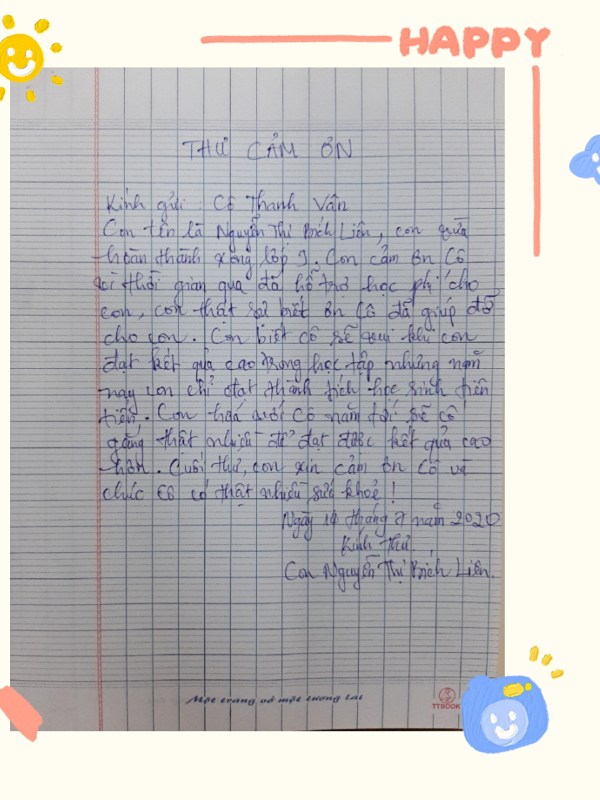 HAPPY
THƯ CẢM ƠN
Kính gửi : Cô Thanh Vân
Con tên là Nguyễn Thị Bích Liên, con vừa
hoàn thành xong lớp 9. Con cảm ơn Cô
vì thời gian qua đã hỗ trợ học phí cho
con, con thật sự biết ơn Cô đã giúp đỡ
cho con. Con biết cô sẽ vui khi con
đạt kết quả cao trong học tập nhưng năm
nay con chỉ đạt thành tích học sinh tiên
tiến. Con hứa với Cô năm tới sẽ cố
gắng thật nhiều để đạt được kết quả cao
hơn. Cuối thư, con xin cảm ơn Cô và
chúc Cô có thật nhiều sức khoẻ !
Ngày 14 tháng 7 năm 2020
Kính thư
Con Nguyễn Thị Bích Liên.
Một trang vở một tương lai
TTBOOK